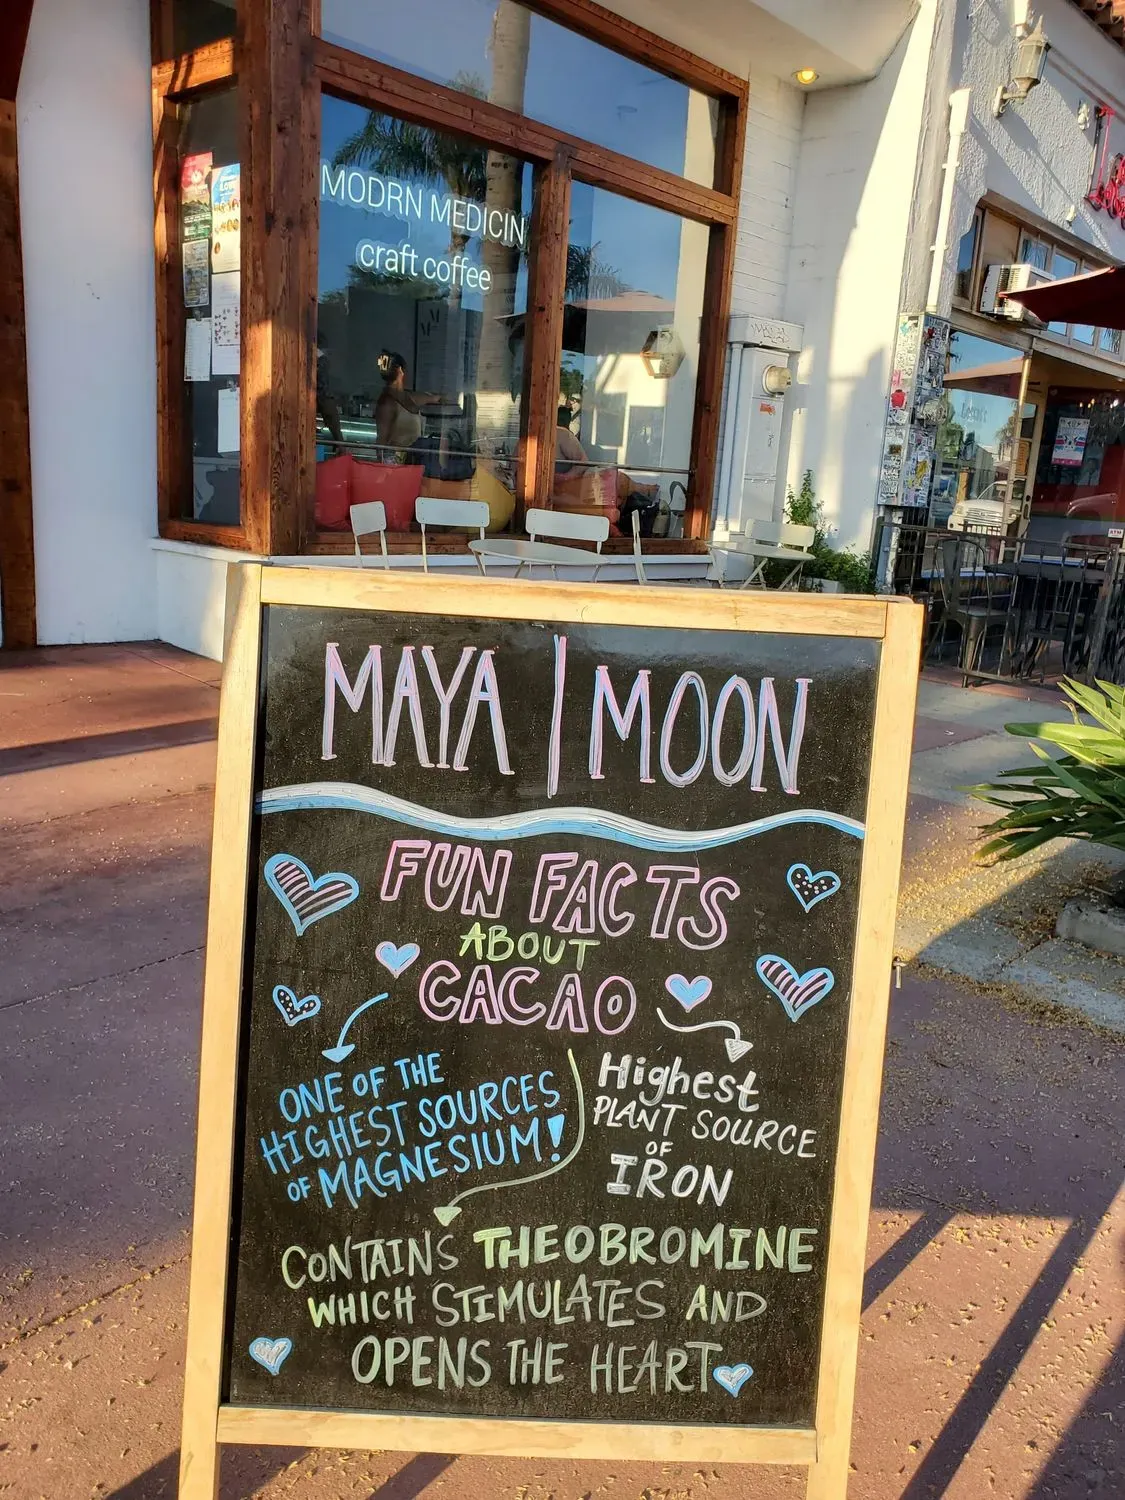 MODRN MEDICIN
craft coffee
MAYA | MOON
FUN FACTS
ABOUT
CACAO
ONE OF THE
HIGHEST SOURCES
OF MAGNESIUM!
Highest
PLANT SOURCE
OF
IRON
CONTAINS THEOBROMINE
WHICH STIMULATES AND
OPENS THE HEART
ATM